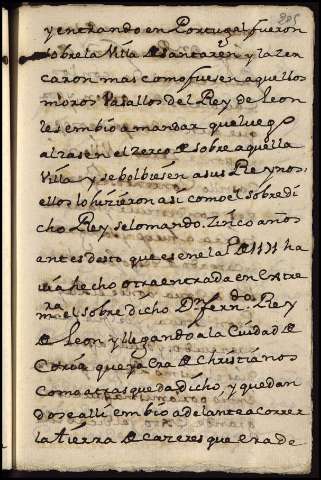 205
y entrando en Portugal fueron
sobre la Villa de Santaren y la zer
caron mas como fuesen aquellos
moros Vasallos del Rey de Leon
les embio a mandar que luego
alzasen el zerco de sobre aquella
Villa y se bolbiesen a sus Reynos.
ellos lo hizieron asi como el sobredi
cho Rey se lo mando. Zinco años
antes desto que es en el a
ha
uia hecho otra entrada en Extre
ma.ra el sobre dicho Dn fern.do Rey
de Leon y llegando a la Ciudad de
Coria que ya era de Christianos
como atras queda dicho, y quedan
dose alli embio adelante a correr
la tierra de Cazeres que era de